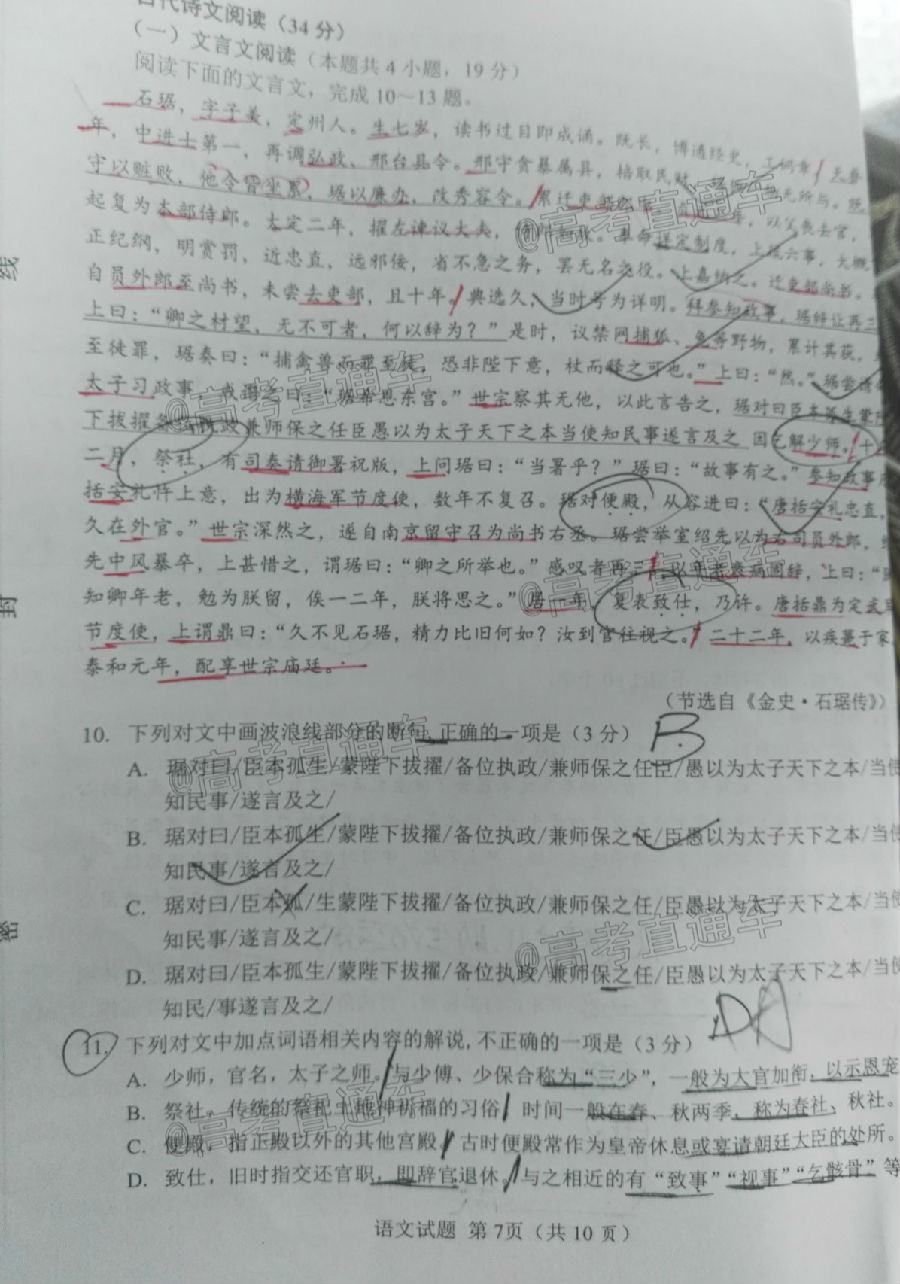 古代诗文阅读（34分）
（一）文言文阅读（本题共4小题，19分）
阅读下面的文言文，完成10～13题。
石琚，字子美，定州人。生七岁，读书过目即成诵。既长，博通经史，工词章
年，中进士第一，再调弘政、邢台县令。邢守贪暴属县，掊取民财，琚 无所与。既
守以赃败，他令皆坐累，琚以廉办，改秀容令。累迁吏部郎中 年，以父丧去官，
起复为本部侍郎。大定二年，擢左谏议大夫，侍郎如故。奉命详定制度，上疏六事，大概
正纪纲，明赏罚，近忠直，远邪佞，省不急之务，罢无名之役。上嘉纳之。迁吏部尚书。
自员外郎至尚书，未尝去吏部，且十年。典选久，当时号为详明。拜参知政事，琚辞让再三
上曰：“卿之材望，无不可者，何以辞为？”是时，议禁网捕狐、兔等野物，累计其获，
至徒罪，琚奏曰：“捕禽兽而罪至徒，恐非陛下意，杖而释之可也。”上曰：“然。”琚尝请
太子习政事，或谓之曰：“琚希恩东宫。”世宗察其无他，以此言告之，琚对曰臣本孤生蒙陛
下拔擢备位执政兼师保之任臣愚以为太子天下之本当使知民事遂言及之 因乞解少师。十
二月，祭社，有司奏请御署祝版，上问琚曰：“当署乎？”琚曰：“故事有之。”参知政事唐
括安礼忤上意，出为横海军节度使，数年不复召。琚对便殿，从容进曰：“唐括安礼忠直，
久在外官。”世宗深然之，遂自南京留守召为尚书右丞。琚尝举室绍先以为右司员外郎，
先中风暴卒，上甚惜之，谓琚曰：“卿之所举也。”感叹者再三。以年老衰病固辞，上曰：“
知卿年老，勉为朕留，俟一二年，朕将思之。”居一年，复表致仕，乃许。唐括鼎为定武军
节度使，上谓鼎曰：“久不见石琚，精力比旧何如？汝到官往视之。”二十二年，以疾薨于家
泰和元年，配享世宗庙廷。
（节选自《金史·石琚传》）
10. 下列对文中画波浪线部分的断句，正确的一项是（3分） B.
A. 琚对曰/臣本孤生/蒙陛下拔擢/备位执政/兼师保之任臣/愚以为太子天下之本/当使
知民事/遂言及之/
B. 琚对曰/臣本孤生/蒙陛下拔擢/备位执政/兼师保之任/臣愚以为太子天下之本/当使
知民事/遂言及之/
C. 琚对曰/臣本孤/生蒙陛下拔擢/备位执政/兼师保之任/臣愚以为太子天下之本/当使
知民事/遂言及之/
D. 琚对曰/臣本孤生/蒙陛下拔擢/备位执政/兼师保之任/臣愚以为太子天下之本/当使
知民/事遂言及之/
11. 下列对文中加点词语相关内容的解说，不正确的一项是（3分）
A. 少师，官名，太子之师。与少傅、少保合称为“三少”，一般为大官加衔，以示恩宠
B. 祭社，传统的祭祀土地神祈福的习俗，时间一般在春、秋两季，称为春社、秋社。
C. 便殿，指正殿以外的其他宫殿，古时便殿常作为皇帝休息或宴请朝廷大臣的处所。
D. 致仕，旧时指交还官职，即辞官退休。与之相近的有“致事”“视事”“乞骸骨”等
语文试题 第7页（共10页）
线
封
密
@高考直通车
@高考直通车
@高考直通车
@高考直通车
@高考直通车
@高考直通车